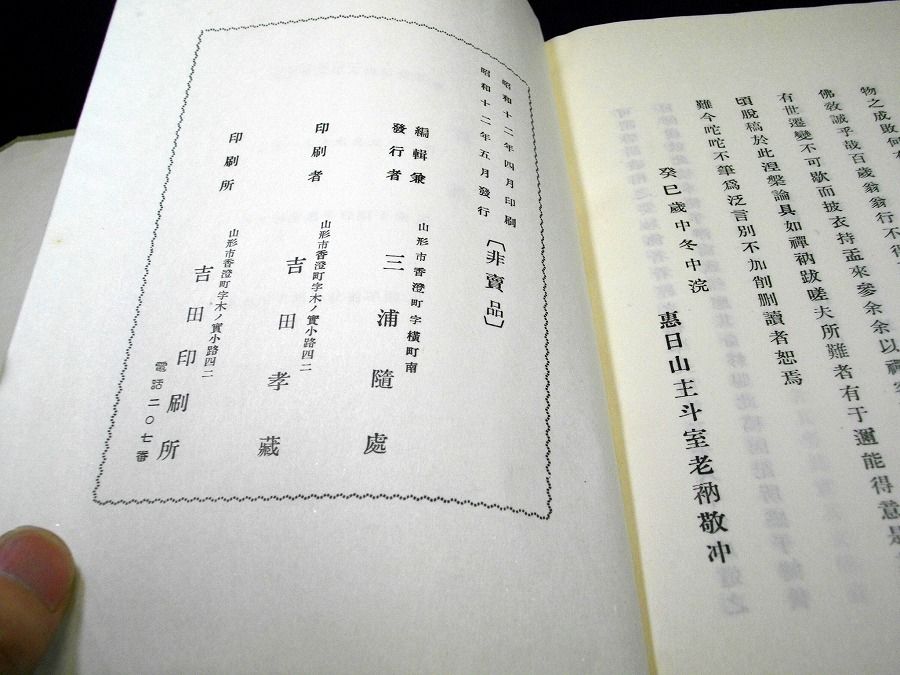 物之成敗何
佛敎誠乎哉百歲翁翁行不得
有世遷變不可歇而披衣持盂來參余余以禪
頃脫稿於此涅槃論具如禪衲跋嗟夫所難者有于邇能得意是
難今咜咜不筆爲泛言別不加削刪讀者恕焉
癸巳歲中冬中浣
惠日山主斗室老衲敬冲
昭和十二年四月印刷
昭和十二年五月發行
〔非賣品〕
編輯兼
發行者
山形市香澄町字橫町南
三浦隨處
印刷者
山形市香澄町字木ノ實小路四二
吉田孝藏
印刷所
山形市香澄町字木ノ實小路四二
吉田印刷所
電話二〇七番